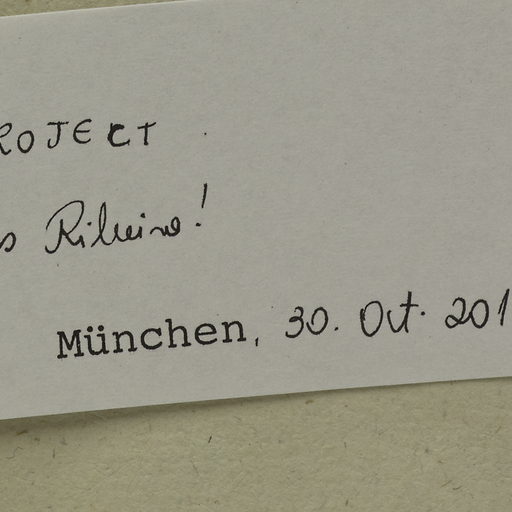 ROJECT
s Ribeiro!
München, 30. Oct. 201